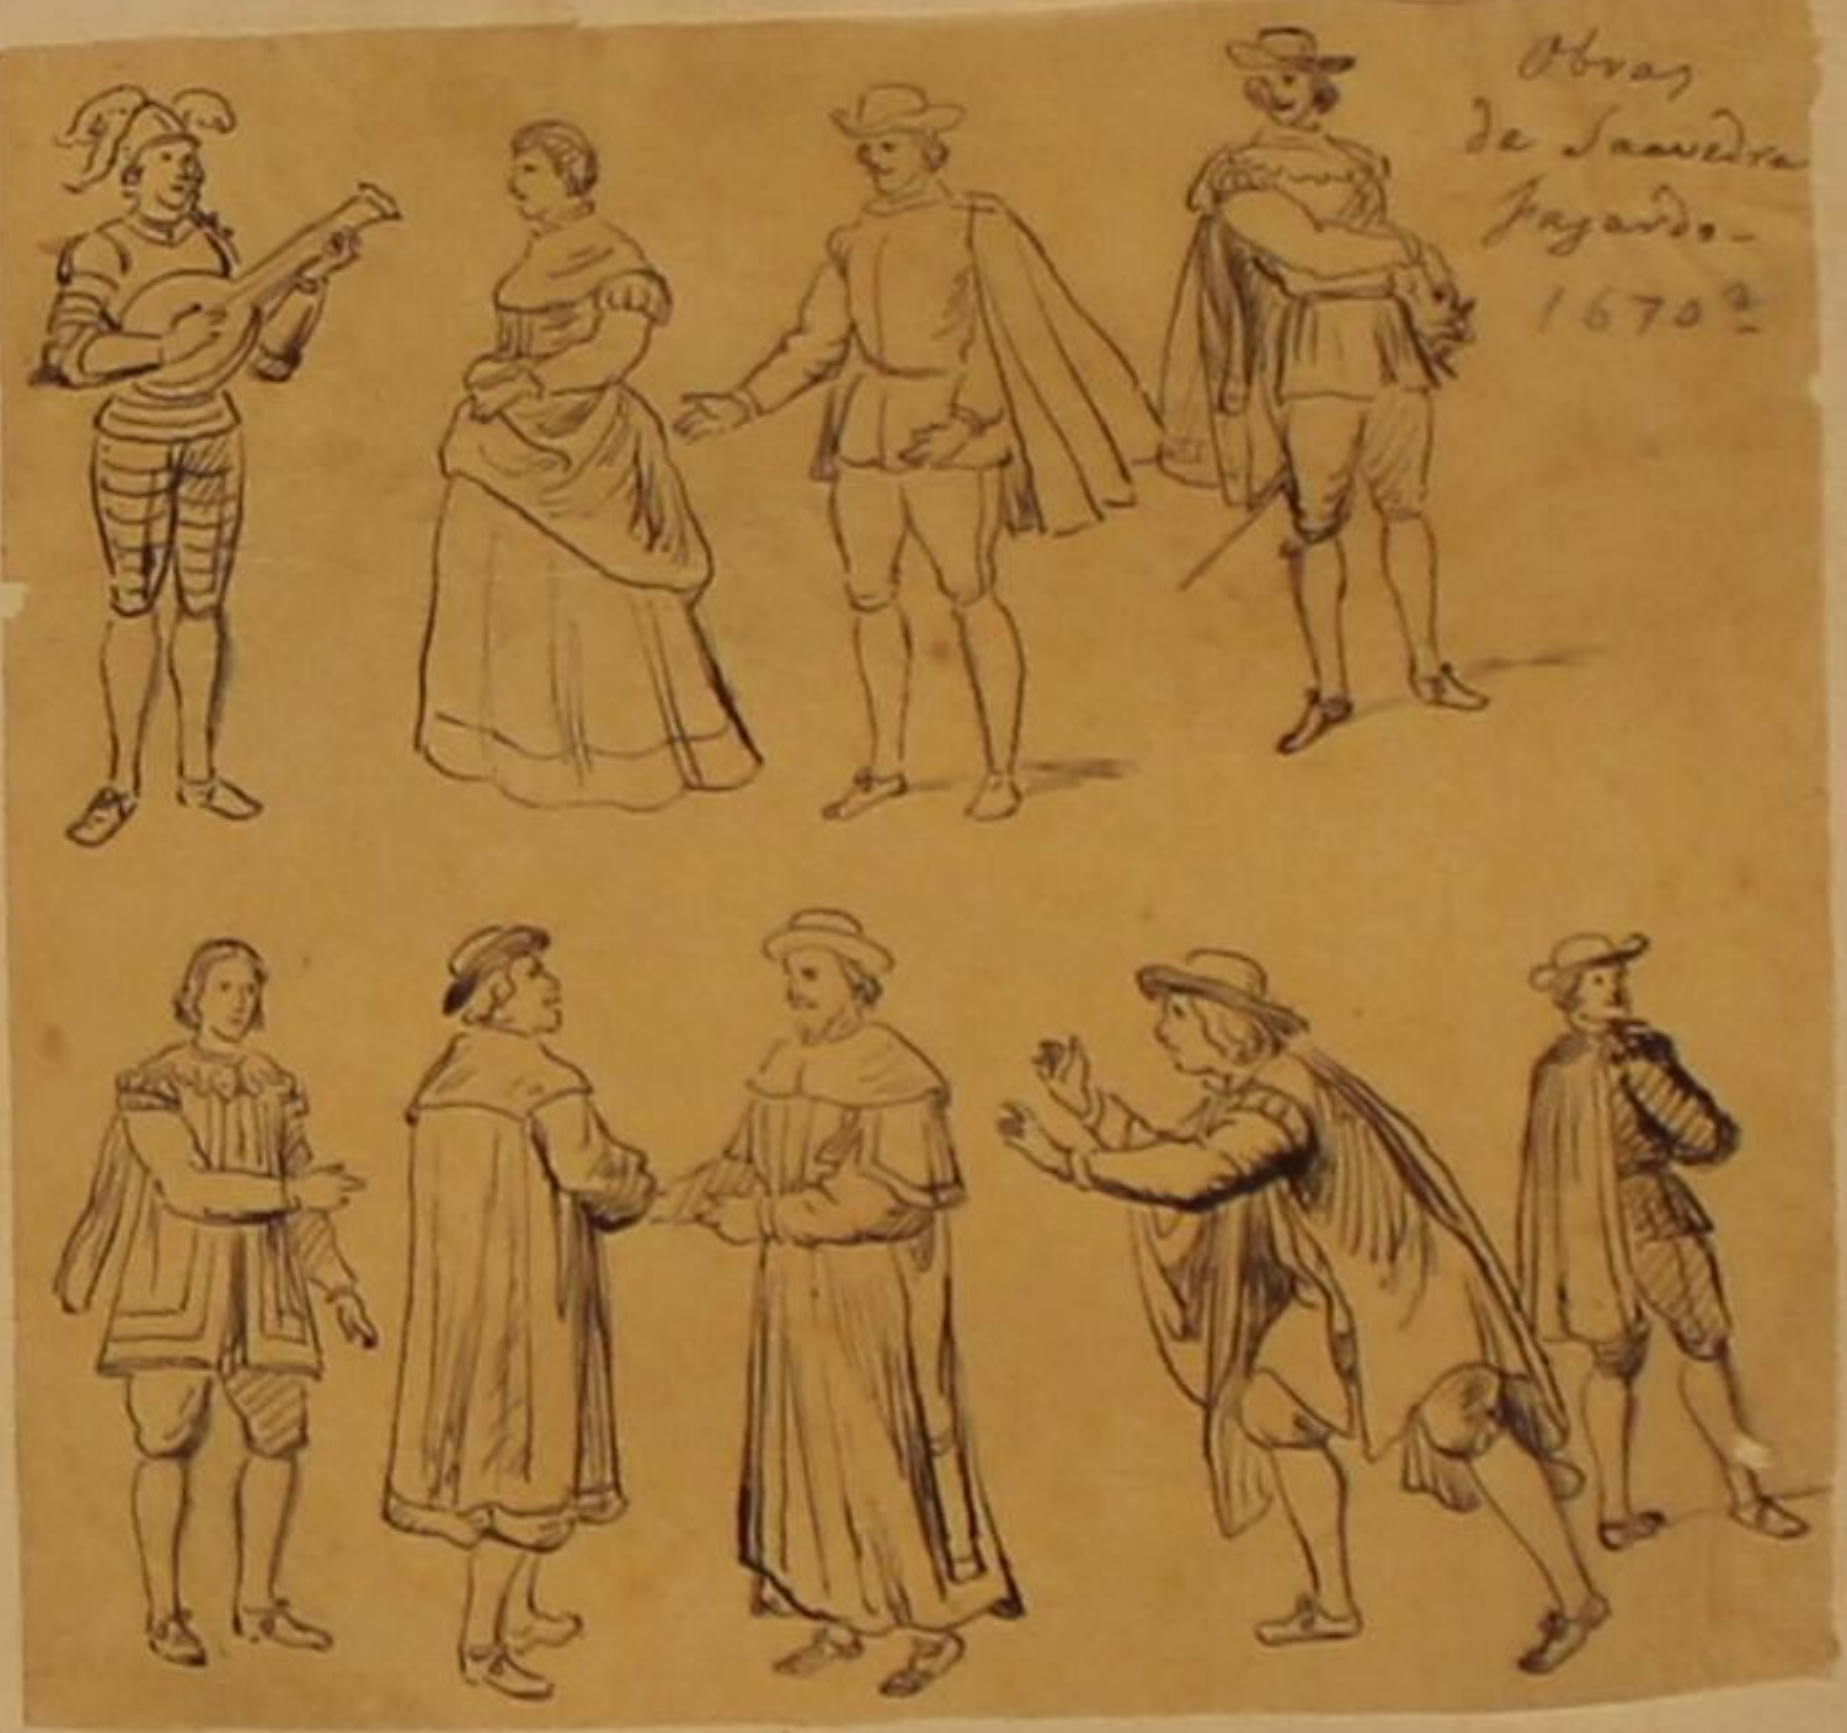 Obras
de Saavedra
fajardo-
1670